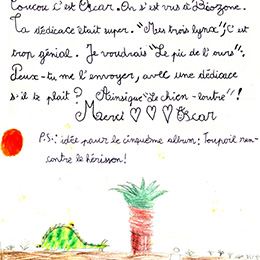 Coucou c'est Oscar. On s'est vus à Biozone.
La dédicace était super. "Mes trois lynx", c'est
trop génial. Je voudrais "Le pic de l'ours".
Peux-tu me l'envoyer, avec une dédicace
s'il te plait ? Ainsi que "Le chien-loutre" !
Merci ♡ ♡ ♡ Oscar
P.S.: idée pour le cinquième album: Toupoil ren-
contre le hérisson!